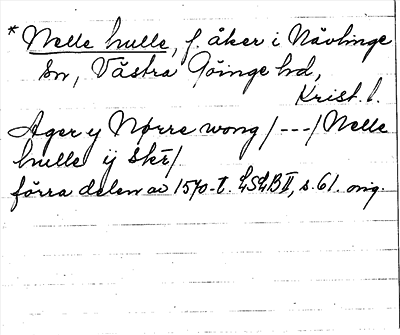 * Nelle hulle, f. åker i Nävlinge
sn, Västra Göinge hd,
Krist. l.
Ager y Nørre wong / --- / Nelle
hulle ÿ skr̄ /
förra delen av 1570-t. LSLB II, s. 61. orig.